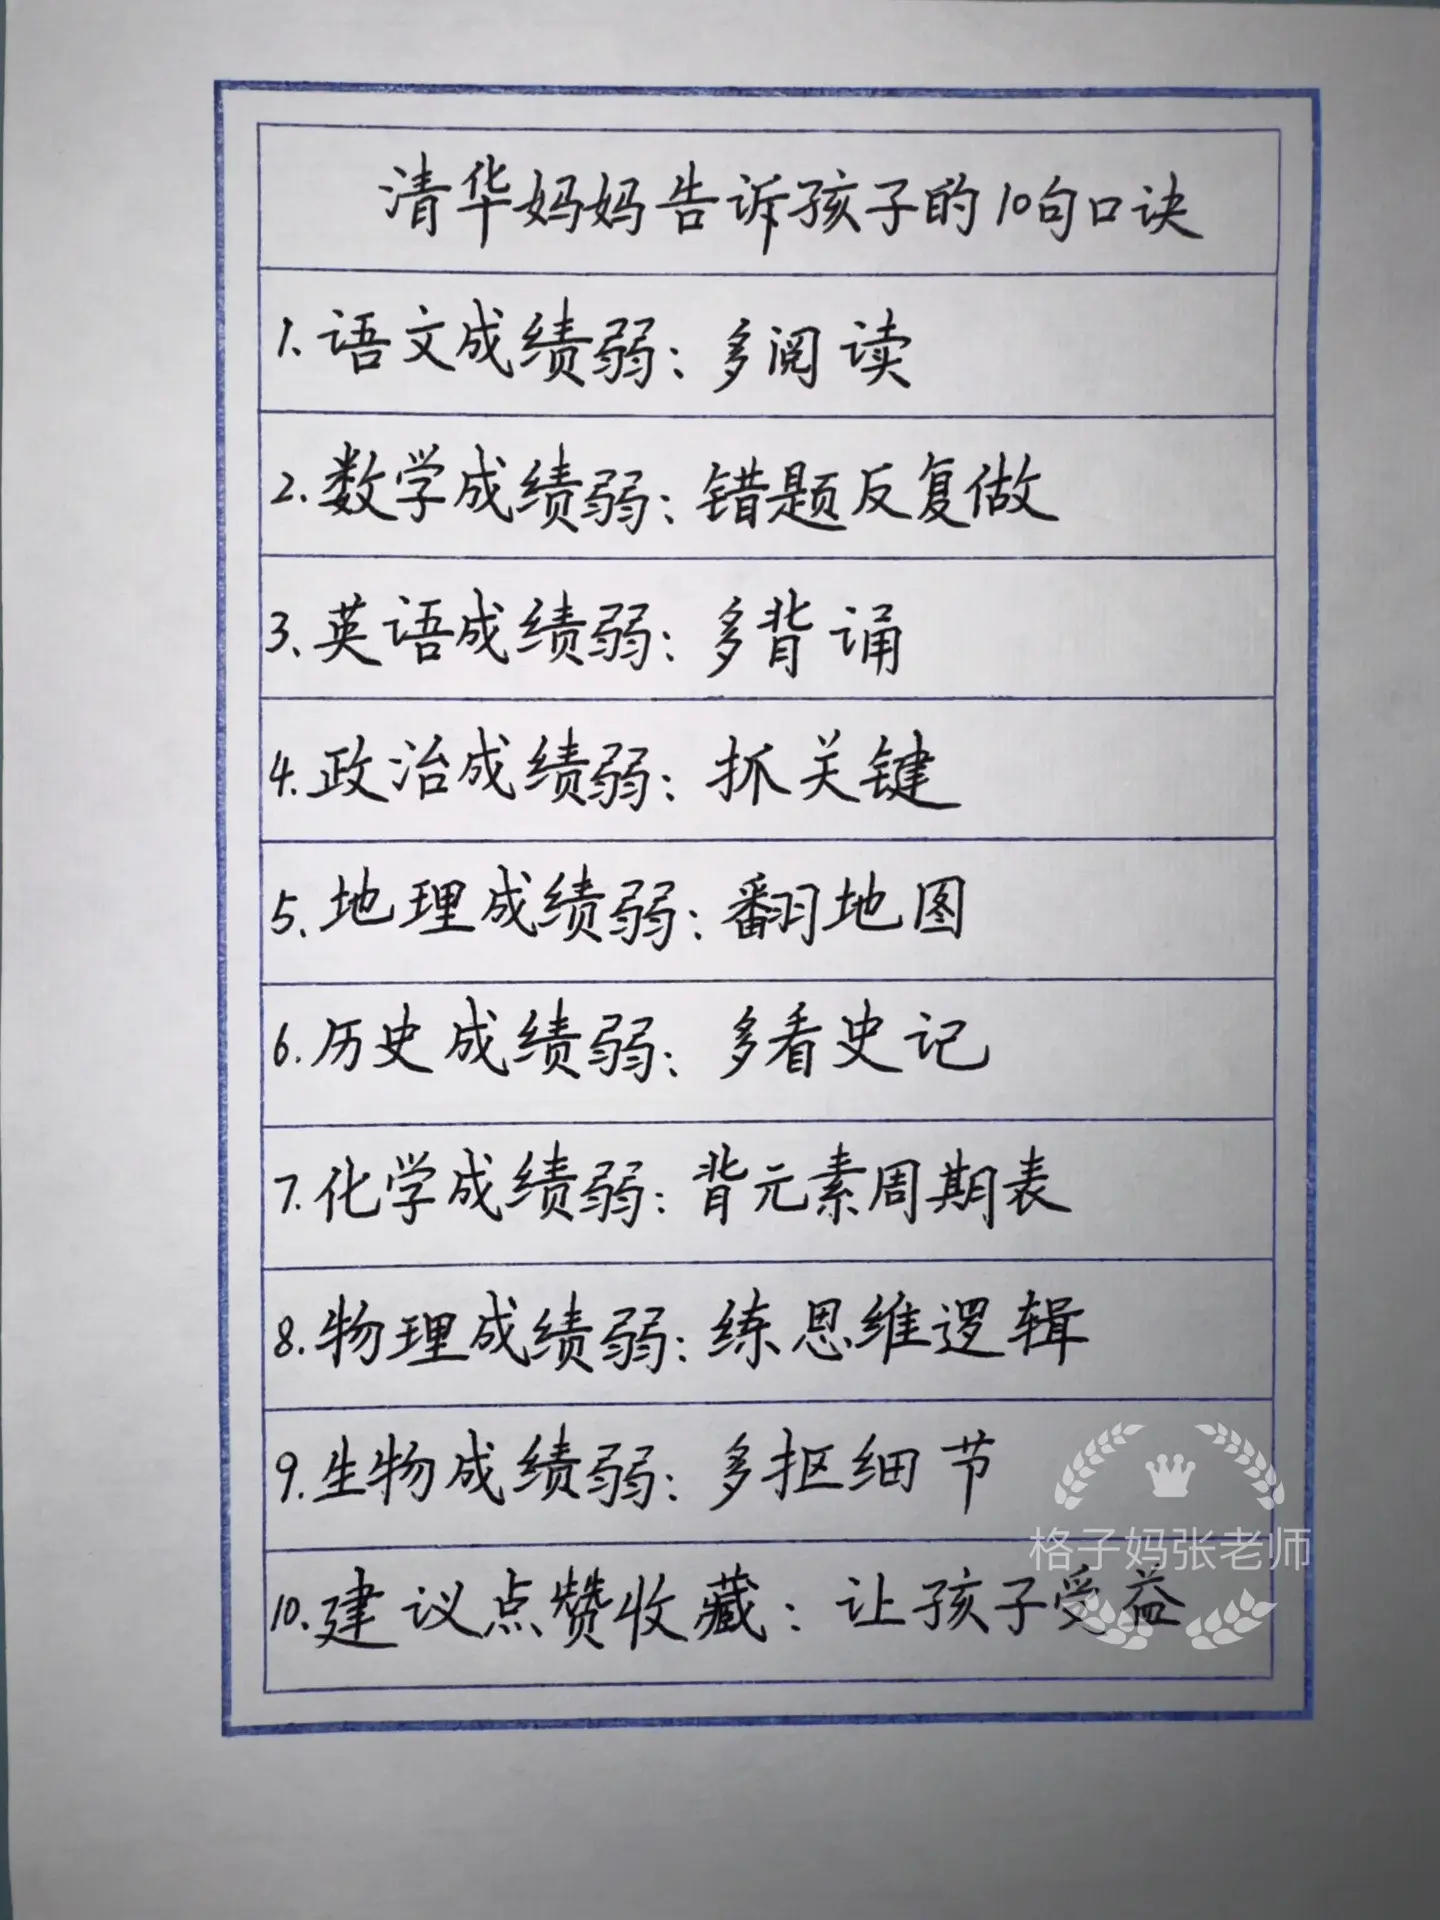 清华妈妈告诉孩子的10句口诀
1.语文成绩弱：多阅读
2.数学成绩弱：错题反复做
3.英语成绩弱：多背诵
4.政治成绩弱：抓关键
5.地理成绩弱：翻地图
6.历史成绩弱：多看史记
7.化学成绩弱：背元素周期表
8.物理成绩弱：练思维逻辑
9.生物成绩弱：多抠细节
格子妈张老师
10.建议点赞收藏：让孩子受益